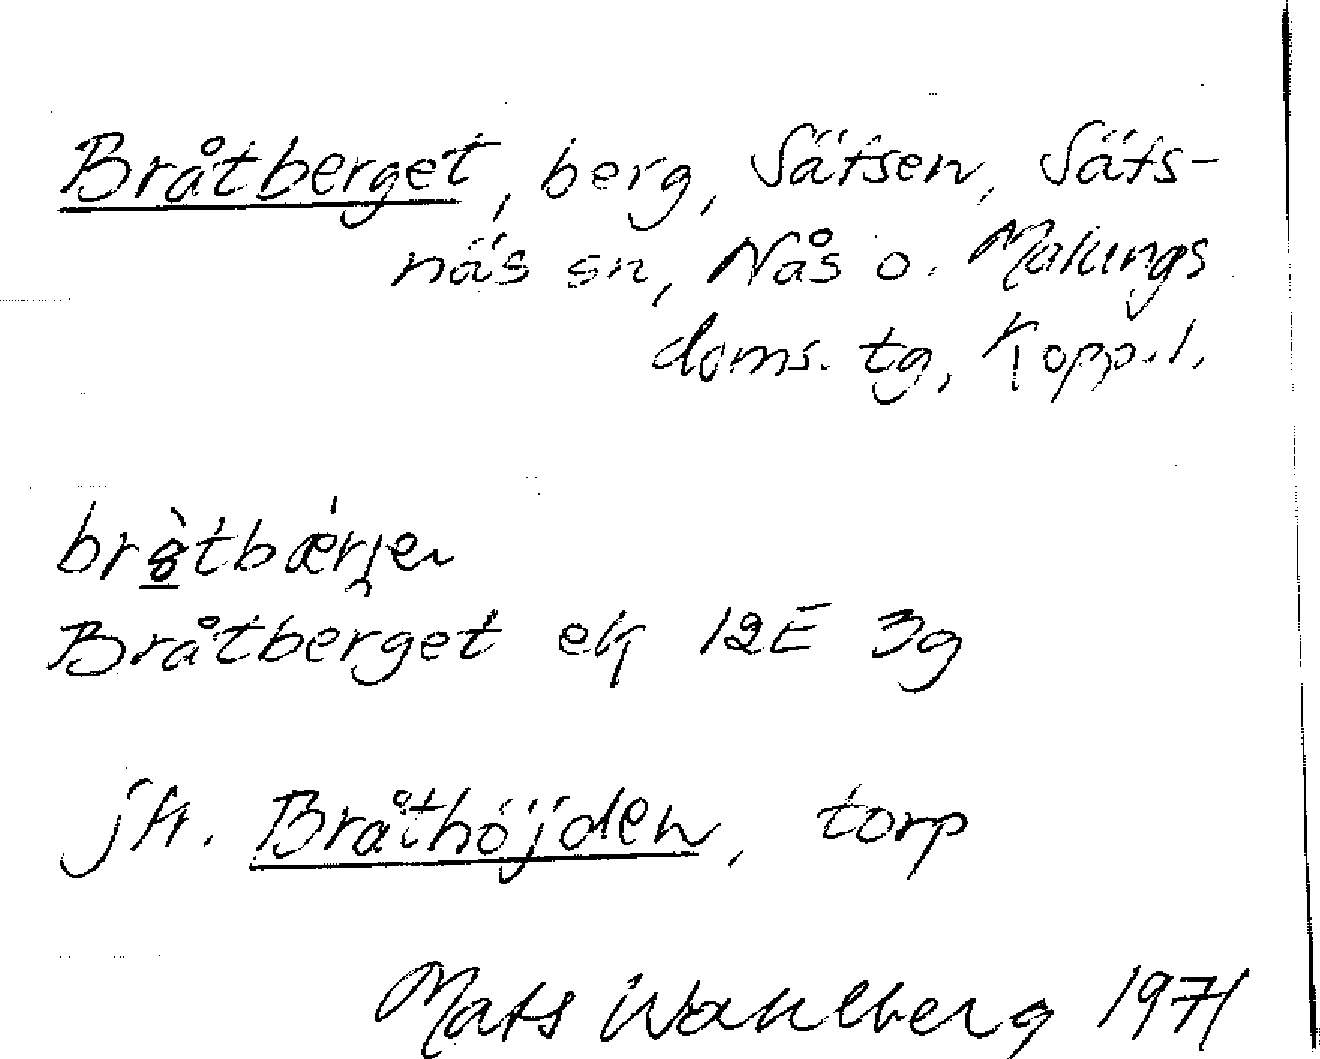 Bråtberget, berg, Sätsen, Säfs-
näs sn, Nås o. Malungs
doms. tg, Kopp. l.
Bråtberget ek 12E 3g
jfr. Bråthöjden, torp
Mats Wahlberg 1971